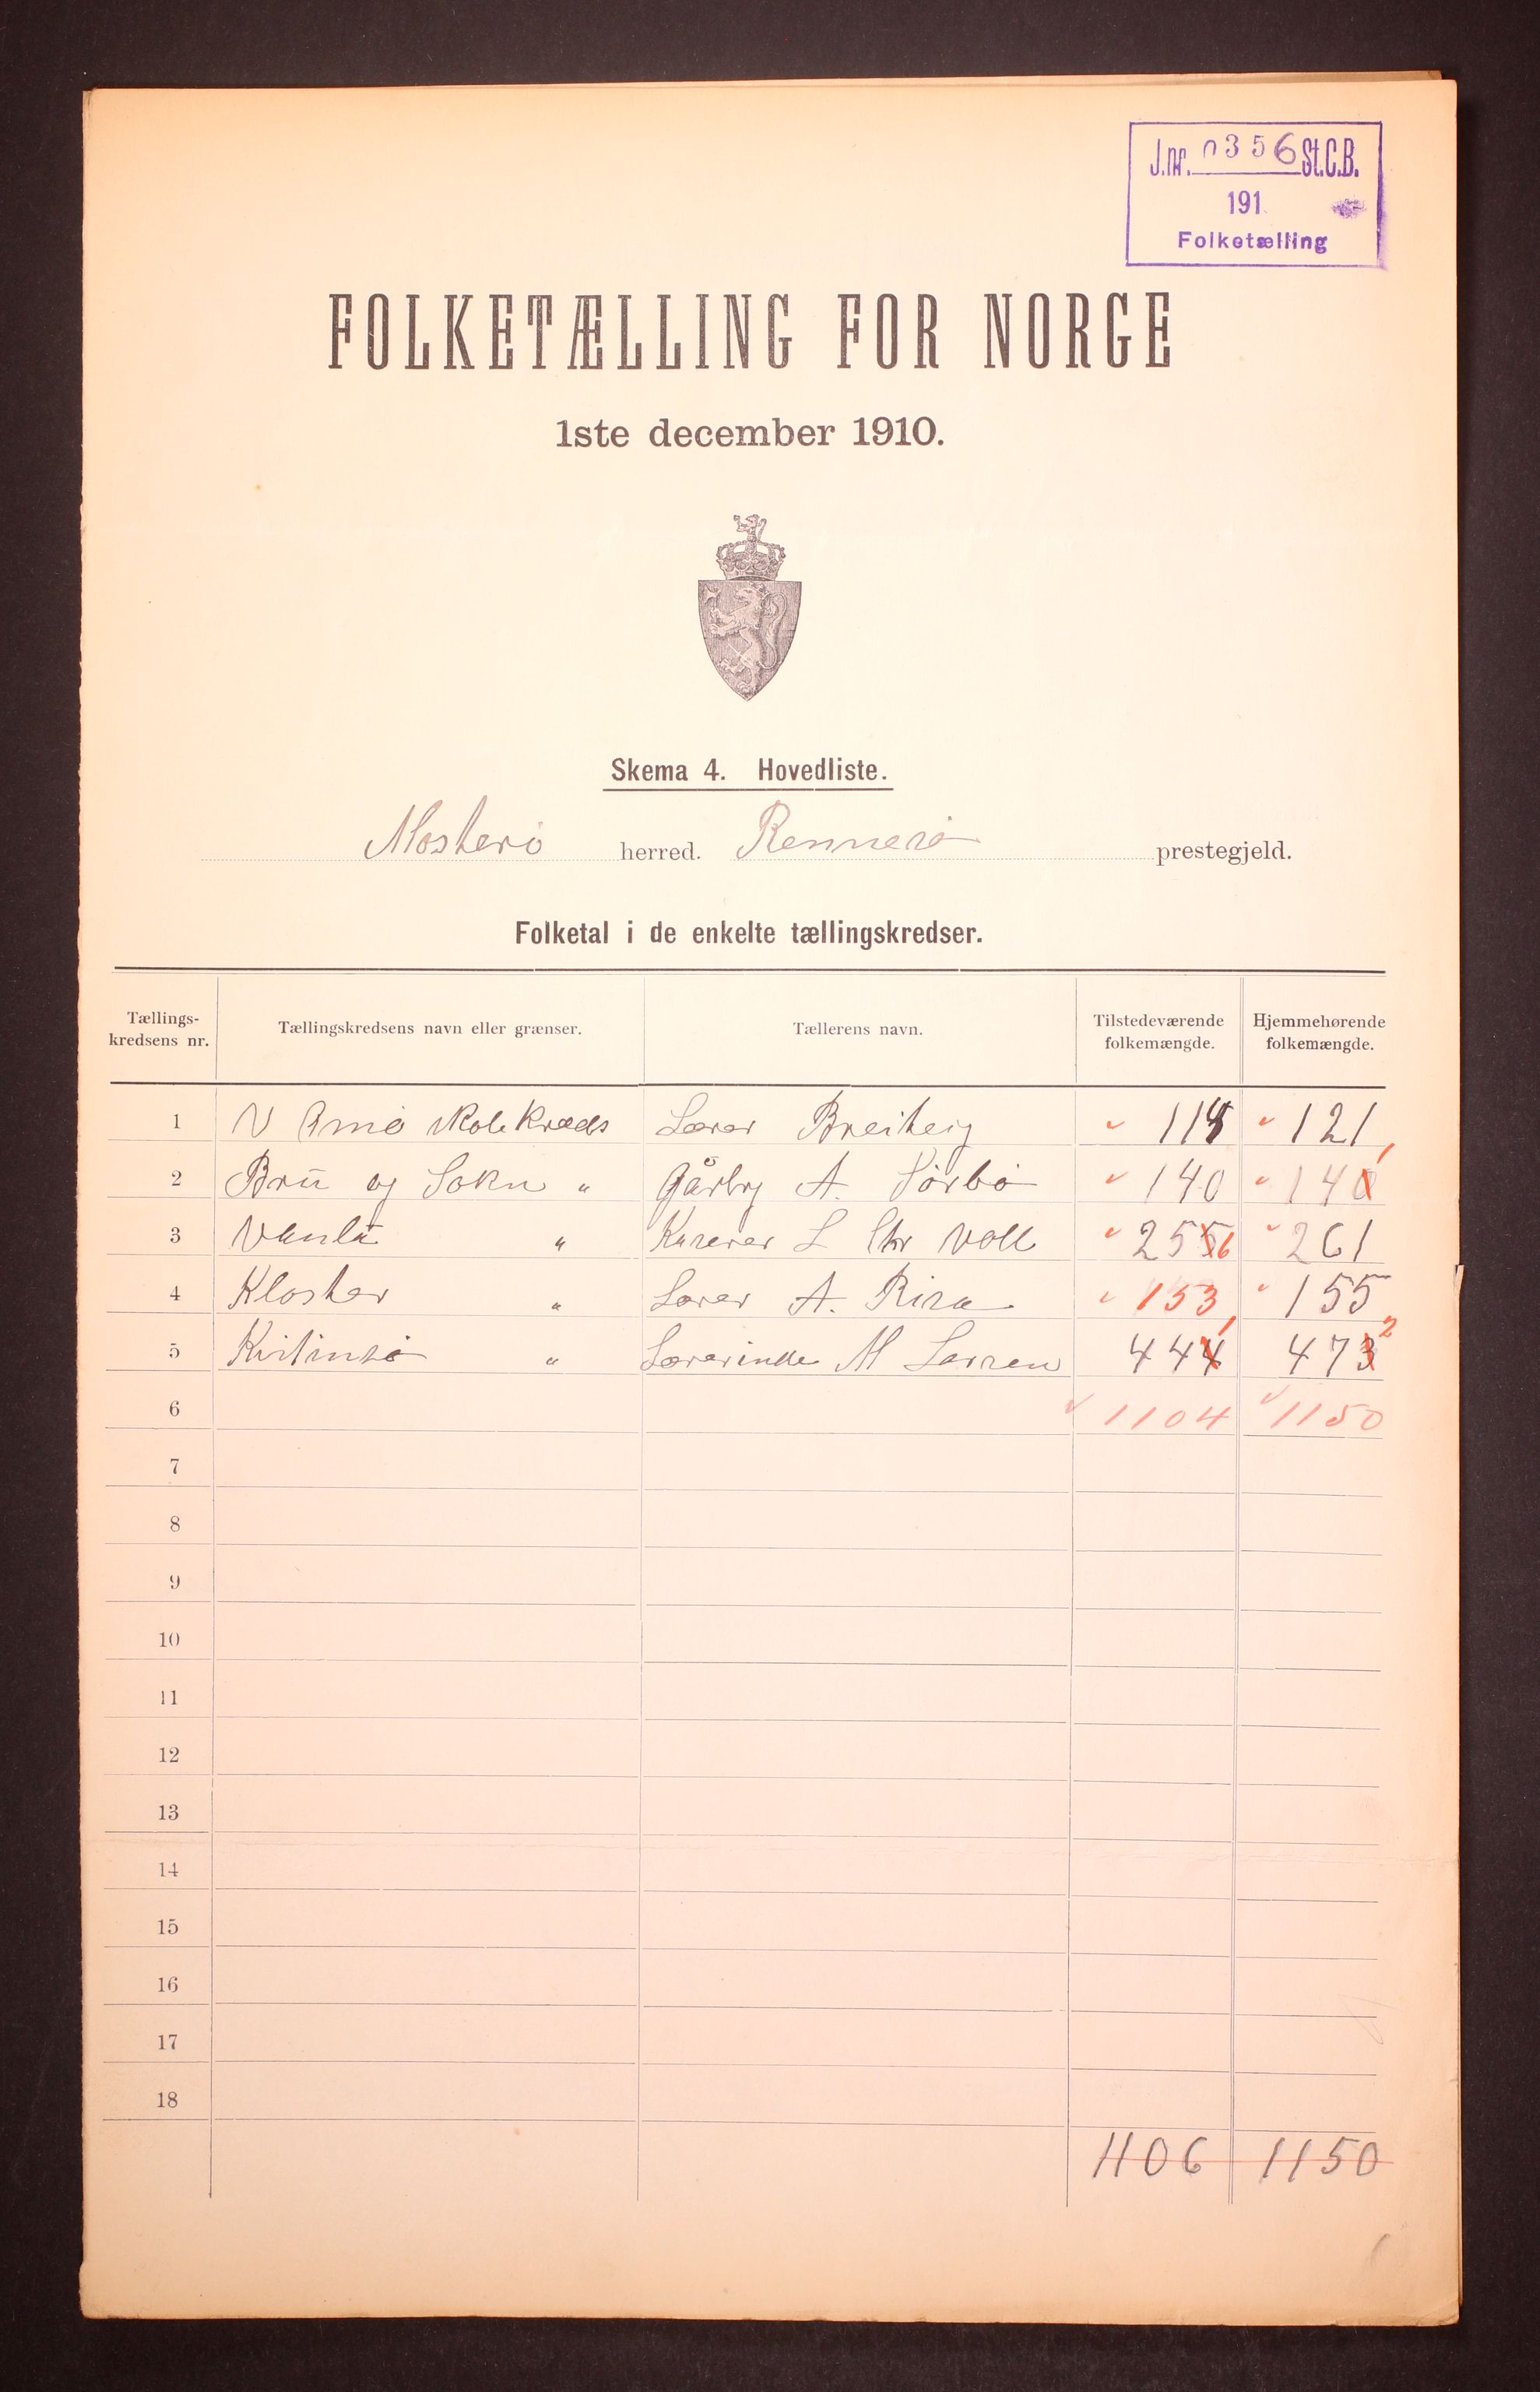 J.nr. 0356 St.C.B.
191
Folketælling
FOLKETÆLLING FOR NORGE
1ste december 1910.
Skema 4. Hovedliste.
Mosterö herred. Rennesö prestegjeld.
Folketal i de enkelte tællingskredser.
Tællings-kredsens nr. Tællingskredsens navn eller grænser. Tællerens navn. Tilstedeværende folkemængde. Hjemmehørende folkemængde.
1 V Amö skolekreds Lærer Breiteig 114 121
2 Bru og Sokn " Gårbr A. Sörbö 140 140 1
3 Vaula " Kaserer L Chr Voll 255 6 261
4 Kloster " Lærer A. Risa 153 155
5 Kvitinsö " Lærerinde M Larsen 444 1 473 2
6 1104 1150
7
8
9
10
11
12
13
14
15
16
17
18
1106 1150